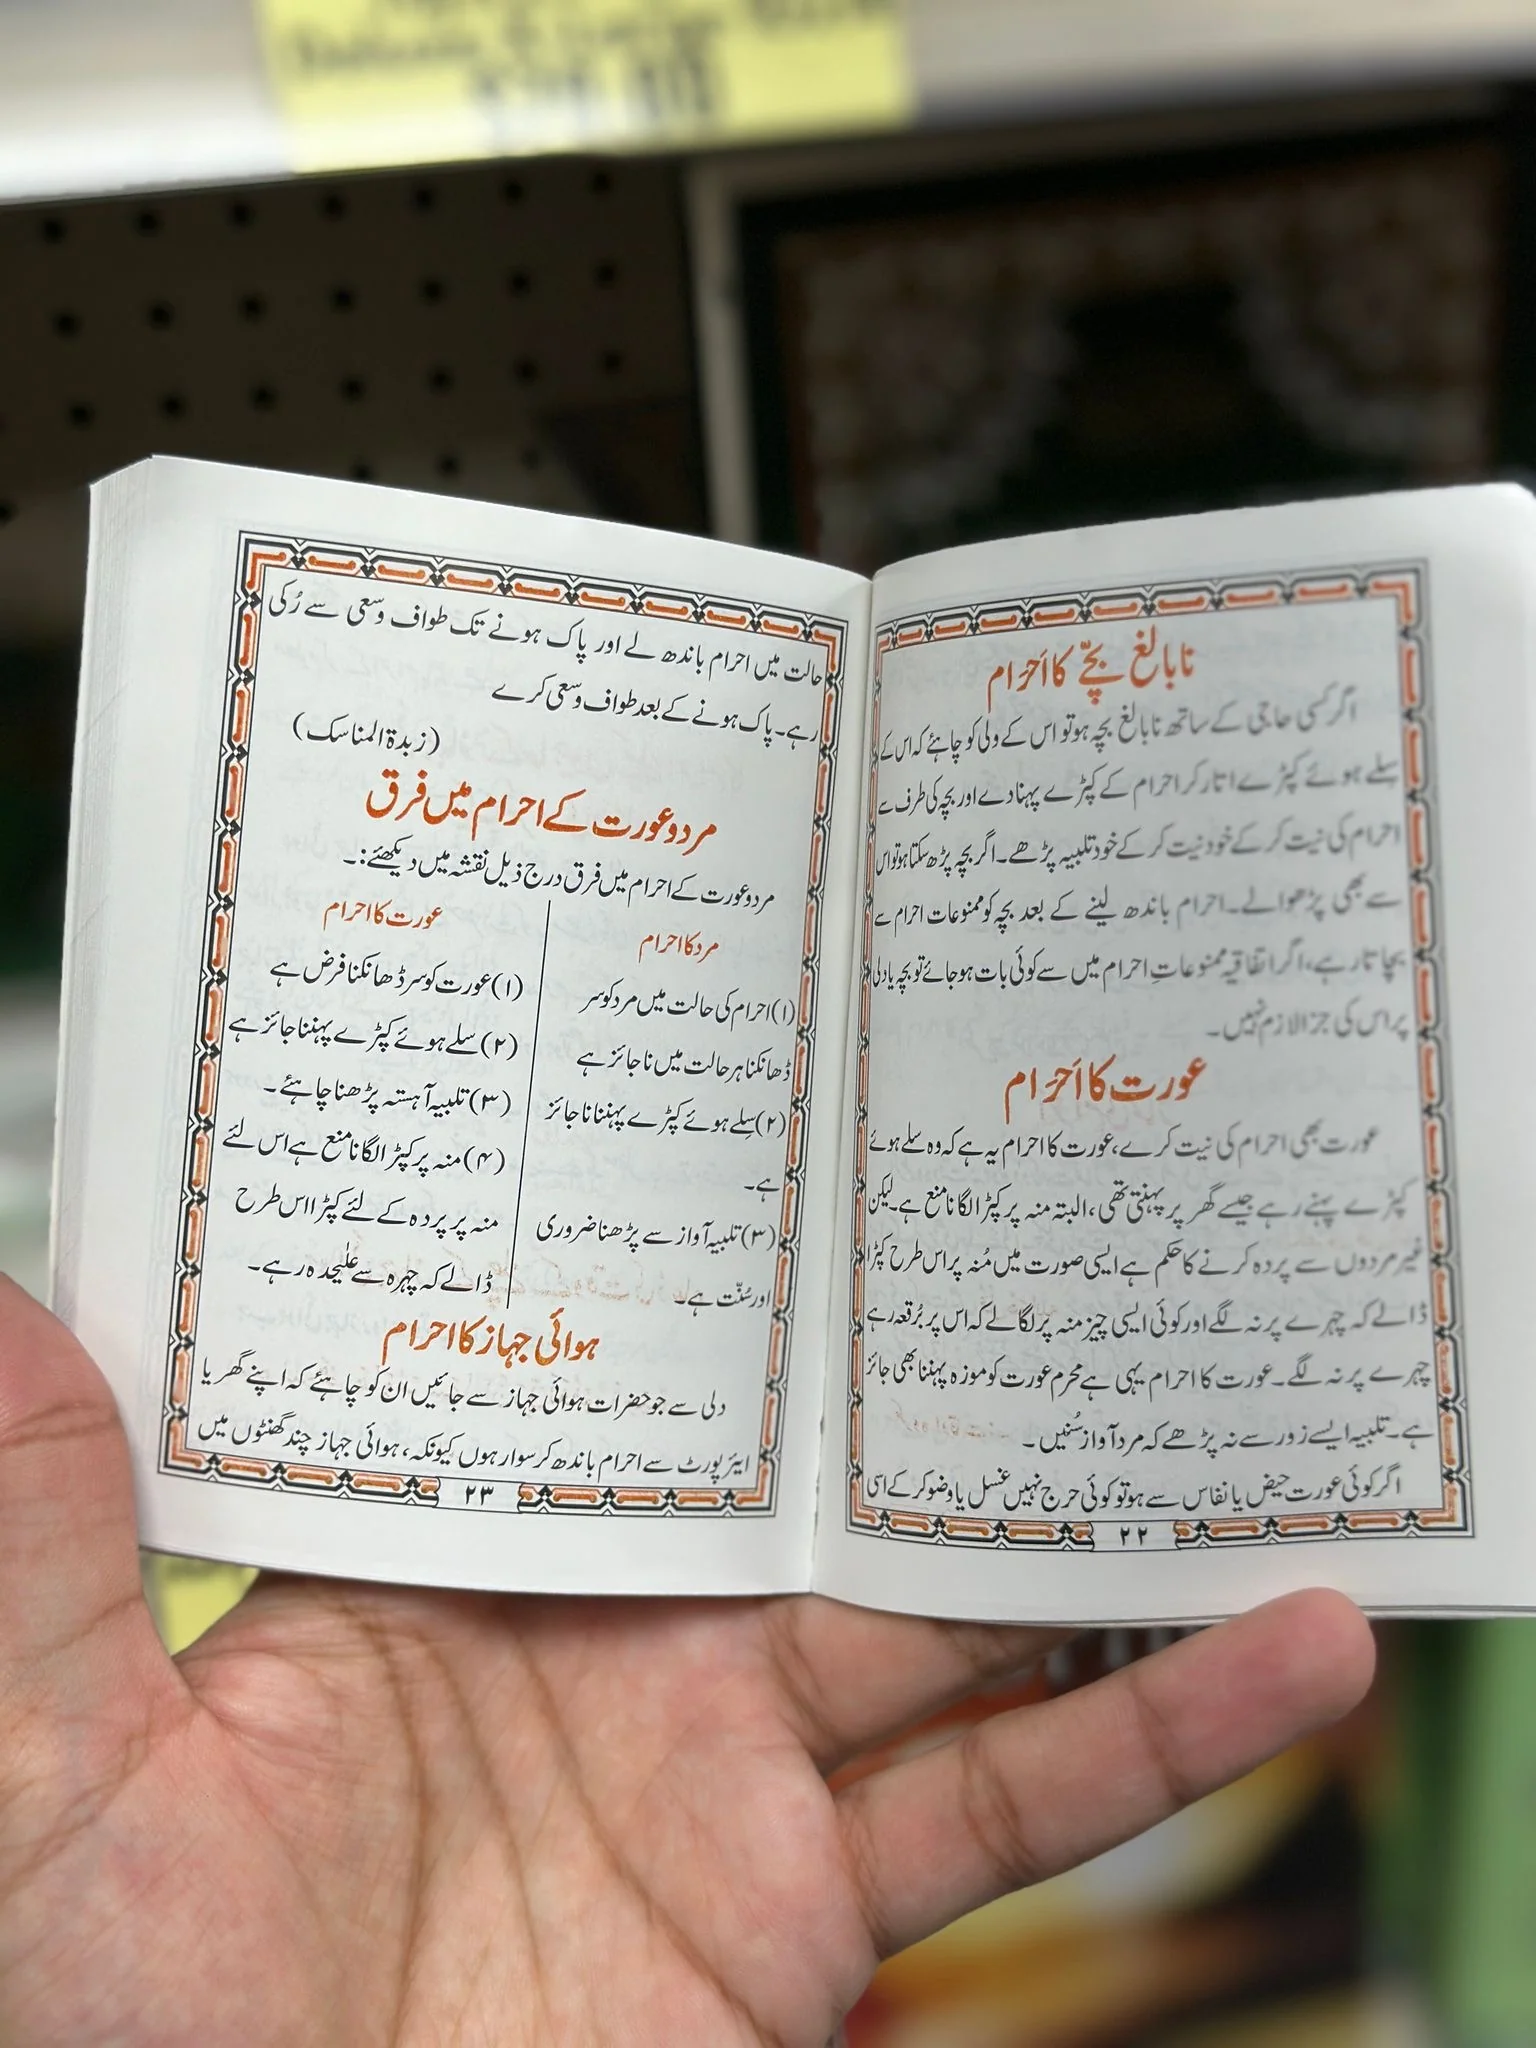 نابالغ بچّے کا اَحرَام
اگر کسی حاجی کے ساتھ نابالغ بچہ ہو تو اس کے ولی کو چاہئے کہ اس کے
سِلے ہوئے کپڑے اتار کر احرام کے کپڑے پہنا دے اور بچہ کی طرف سے
احرام کی نیت کر کے خود نیت کر کے خود تلبیہ پڑھے۔ اگر بچہ پڑھ سکتا ہو تو اس
سے بھی پڑھوالے۔ احرام باندھ لینے کے بعد بچہ کو ممنوعات احرام سے
بچاتا رہے، اگر اتفاقیہ ممنوعاتِ احرام میں سے کوئی بات ہو جائے تو بچہ یا ولی
پر اس کی جزا لازم نہیں۔
عورت کا اَحرَام
عورت بھی احرام کی نیت کرے، عورت کا احرام یہ ہے کہ وہ سلے ہوئے
کپڑے پہنے رہے جیسے گھر پر پہنتی تھی، البتہ منہ پر کپڑا لگانا منع ہے۔ لیکن
غیر مردوں سے پردہ کرنے کا حکم ہے ایسی صورت میں مُنہ پر اس طرح کپڑا
ڈالے کہ چہرے پر نہ لگے اور کوئی ایسی چیز منہ پر لگالے کہ اس پر بُرقعہ رہے
چہرے پر نہ لگے۔ عورت کا احرام یہی ہے محرم عورت کو موزہ پہننا بھی جائز
ہے۔ تلبیہ ایسے زور سے نہ پڑھے کہ مرد آواز سُنیں۔
اگر کوئی عورت حیض یا نفاس سے ہو تو کوئی حرج نہیں غسل یا وضو کر کے اسی
۲۲
حالت میں احرام باندھ لے اور پاک ہونے تک طواف وسعی سے رُکی
رہے۔ پاک ہونے کے بعد طواف وسعی کرے
(زبدۃ المناسک)
مرد و عورت کے احرام میں فرق
مرد و عورت کے احرام میں فرق درج ذیل نقشہ میں دیکھئے:۔
مرد کا احرام
(۱) احرام کی حالت میں مرد کو سر
ڈھانکنا ہر حالت میں ناجائز ہے
(۲) سِلے ہوئے کپڑے پہننا ناجائز
ہے۔
(۳) تلبیہ آواز سے پڑھنا ضروری
اور سُنّت ہے۔
عورت کا احرام
(۱) عورت کو سر ڈھانکنا فرض ہے
(۲) سلے ہوئے کپڑے پہننا جائز ہے
(۳) تلبیہ آہستہ پڑھنا چاہئے۔
(۴) منہ پر کپڑا لگانا منع ہے اس لئے
منہ پر پردہ کے لئے کپڑا اس طرح
ڈالے کہ چہرہ سے علٰیحدہ رہے۔
ہوائی جہاز کا احرام
دلی سے جو حضرات ہوائی جہاز سے جائیں ان کو چاہئے کہ اپنے گھر یا
ایئر پورٹ سے احرام باندھ کر سوار ہوں کیونکہ، ہوائی جہاز چند گھنٹوں میں
۲۳